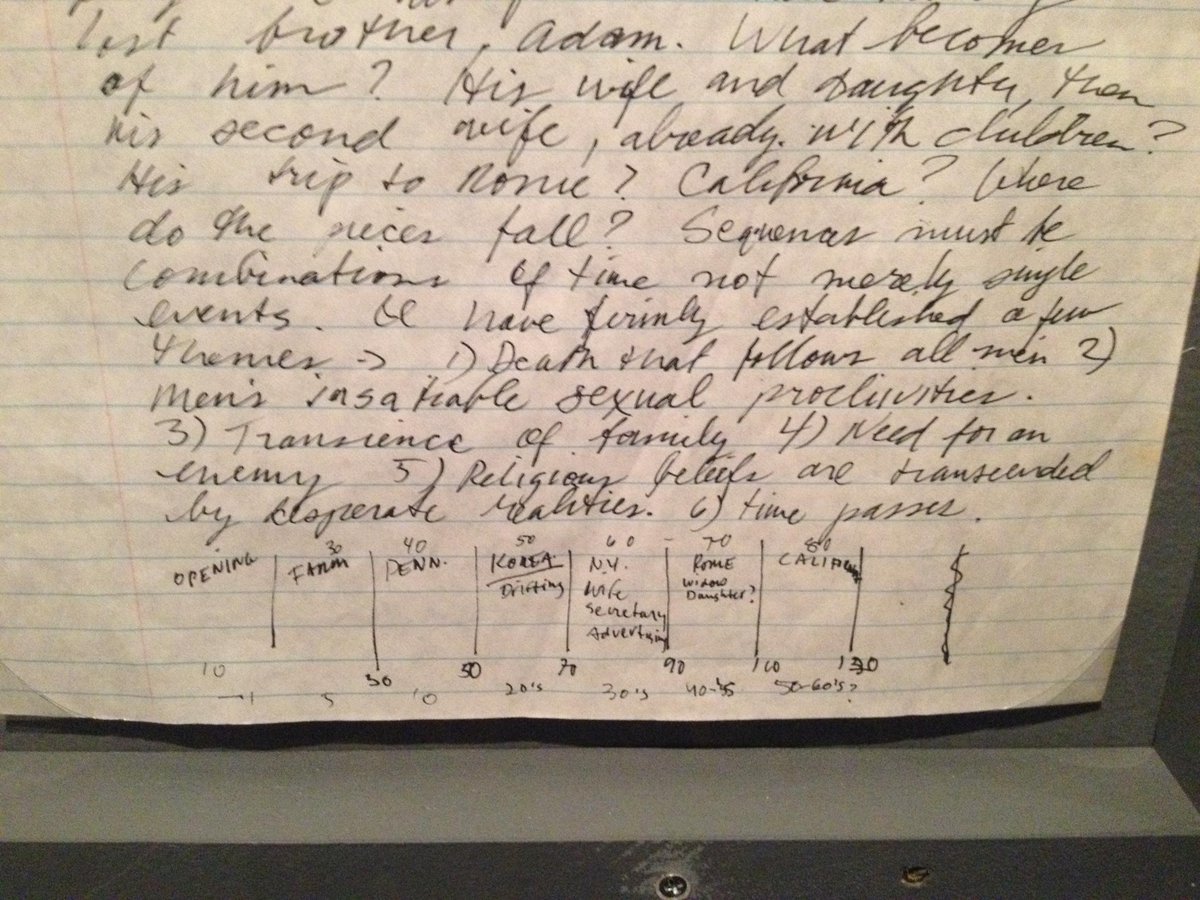 lost brother, Adam. What becomes
of him? His wife and daughter, then
his second wife, already with children?
His trip to Rome? California? Where
do the pieces fall? Sequences must be
combinations of time not merely single
events. I have firmly established a few
themes → 1) Death that follows all men 2)
men's insatiable sexual proclivities.
3) Transience of family 4) Need for an
enemy 5) Religious beliefs are transcended
by desperate realities. 6) time passes.
30 40 50 60 - 70 80
OPENING FARM PENN. KOREA N.Y. ROME CALIFORNIA
Drifting Wife Widow
Secretary Daughter?
Advertising
10 30 50 70 90 100 130
-1 5 10 20's 30's 40-45 50-60's?